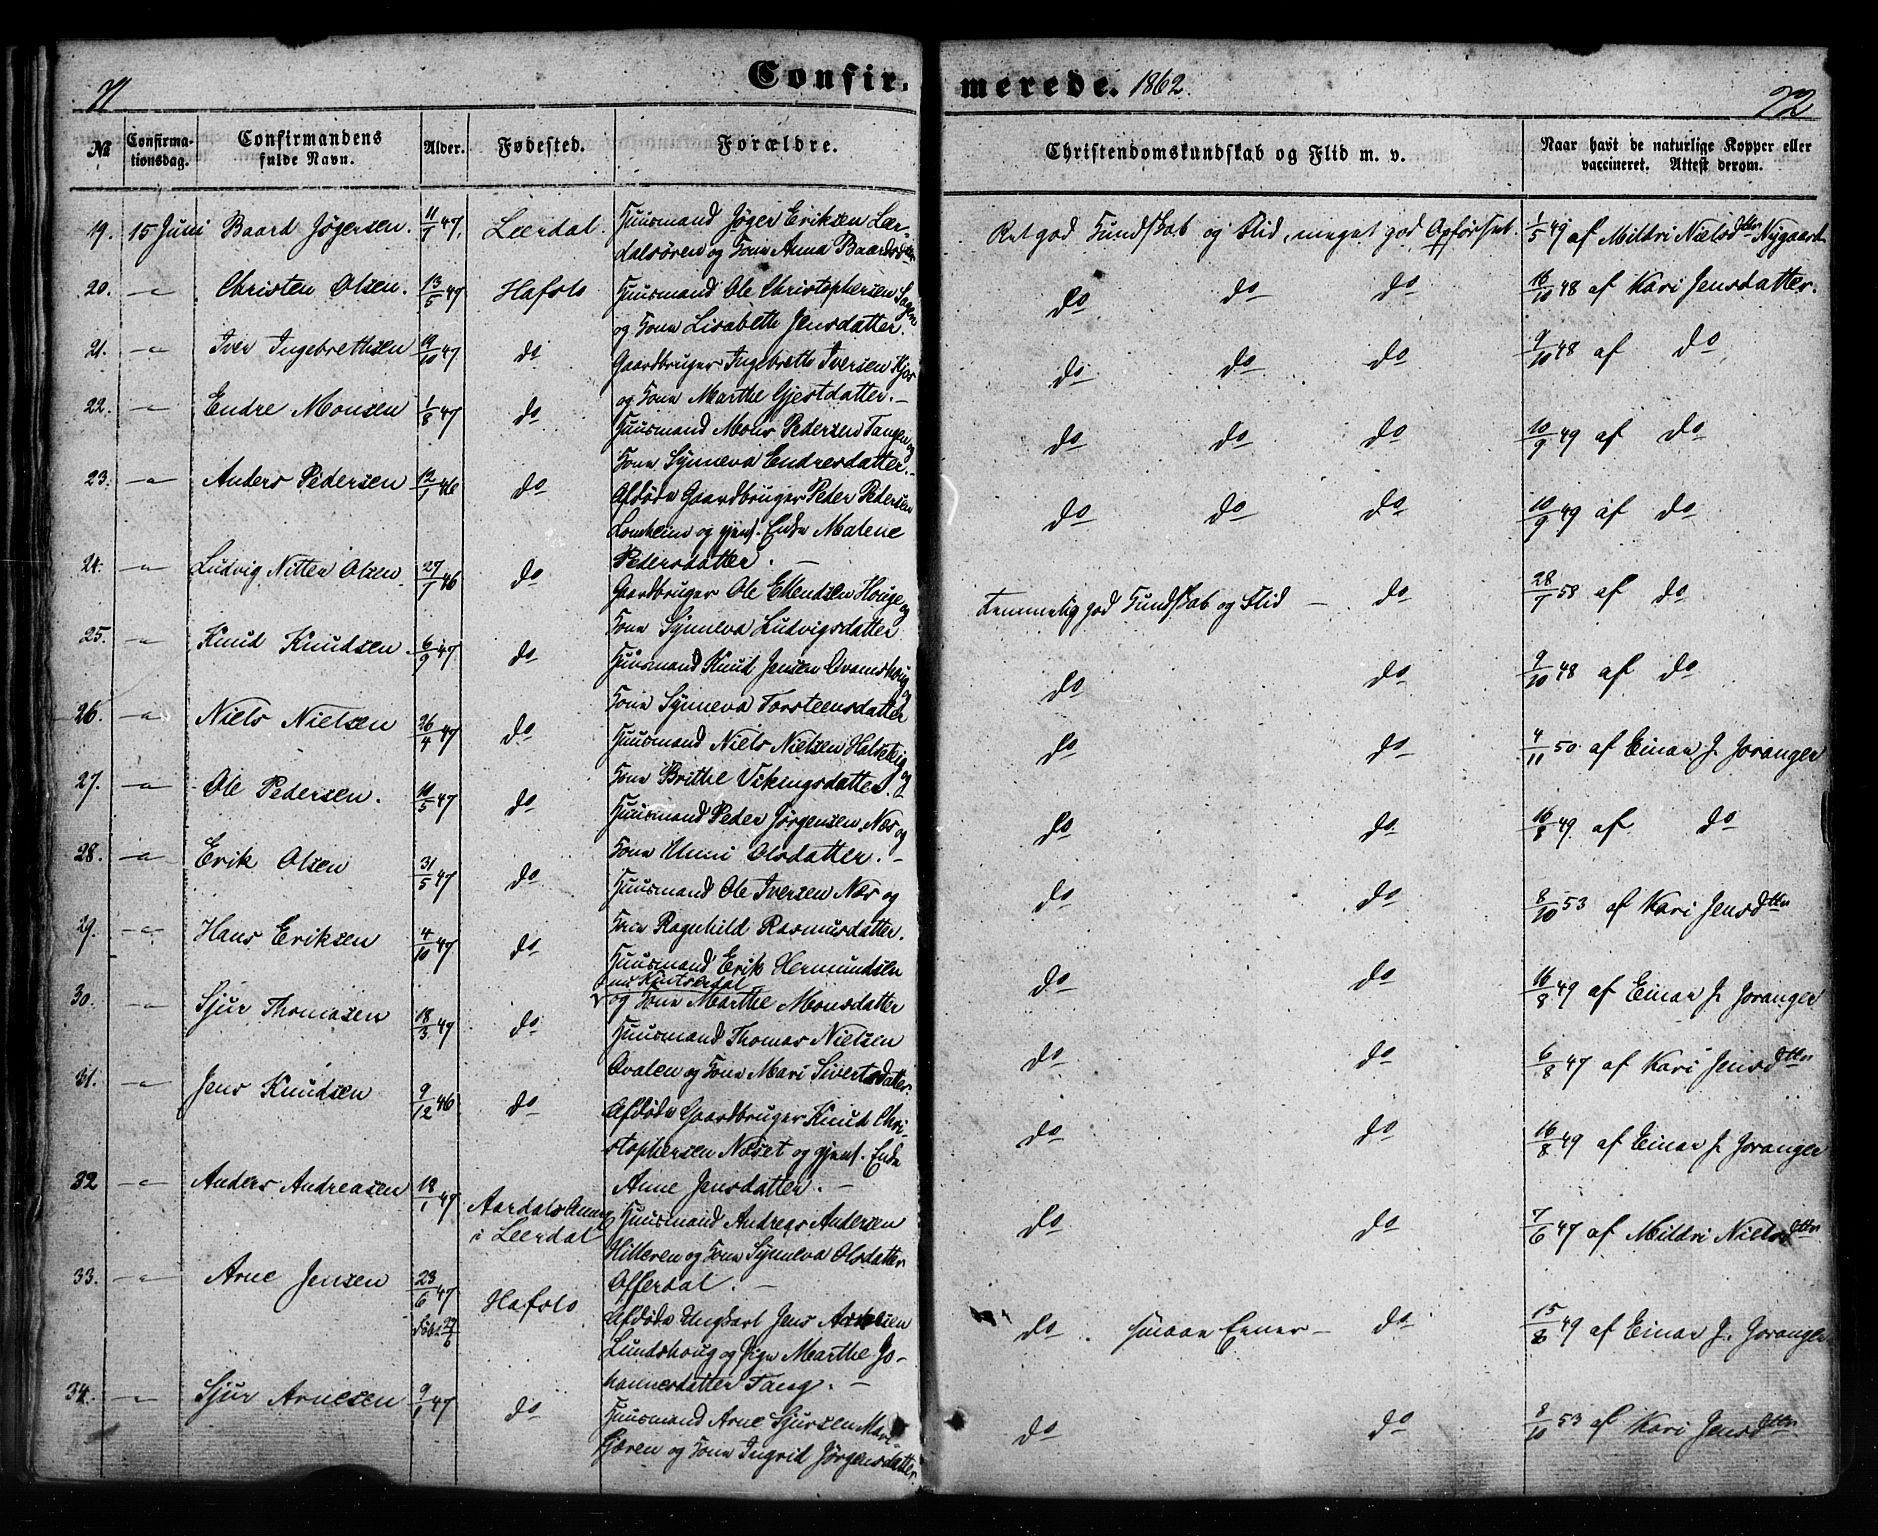 71
Confirmerede. 1862.
72
No
Confirmationsdag.
Confirmandens fulde Navn.
Alder.
Fødested.
Forældre.
Christendomskundskab og Flid m. v.
Naar havt de naturlige Kopper eller vaccineret. Attest derom.
19. 15 Juni Baard Jøgersen. 11/7 47. Leerdal. Huusmand Jøger Eriksen Leer-
dalsøren og Kone Anna Baardsdtr
Ret god Kundskab og Flid, meget god Opførsel. 1/5 49 af Mildri Nielsdttr Nygaard
20. " Christen Olsen. 13/5 47 Hafslo Huusmand Ole Christophersen Hagen
og Kone Lisabeth Jensdatter.
do do do 18/10 48 af Kari Jensdatter.
21. " Iver Ingebrethsen 10 47 do Gaardbruger Ingebreth Iversen Kjos
og Kone Marthe Gjestdatter. -
do do do 9/10 48 af do
22. " Endre Monsen 1/8 47 do Huusmand Mons Pedersen Tangen og
Kone Synneva Endresdatter. -
do do do 10/9 49 af do
23. " Anders Pedersen 12/1 46 do Afdøde Gaardbruger Peder Pedersen
Lomheim og gjenl. Enke Malene
Pedersdatter. -
do do do 10/9 49 af do
24. " Ludvig Nitter Olsen 27/7 46 do Gaardbruger Ole Ellendsen Houge og
Kone Synneva Ludvigsdatter
Temmelig god Kundskab og Flid - do 28/7 58 af do
25. " Knud Knudsen 6/9 47 do Huusmand Knud Jensen Qvamshoug og
Kone Synneva Torsteensdatter
do do 9/10 48 af do
26. " Niels Nielsen 26/4 47 do Huusmand Niels Nielsen Halseig og
Kone Brithe Vikingsdatter.
do do 4/11 50 af Einar J. Joranger
27. " Ole Pedersen. 10/5 47 do Huusmand Peder Jørgensen Næs og
Kone Unni Olsdatter. -
do do 16/8 49. af do
28. " Erik Olsen 31/5 47 do Huusmand Ole Iversen Næs og
Kone Ragnhild Rasmusdatter.
do do 8/10 53 af Kari Jensdttr
29. " Hans Eriksen 4/10 47 do Huusmand Erik Hermundsen
og Kone Marthe Monsdatter
do do 16/8 49 af Einar J. Joranger
30. " Sjur Thomasen 18/3 49 do Huusmand Thomas Nielsen
Qvalen og Kone Mari Sivertsdatter
do do 6/8 47 af Kari Jensdttr
31. " Jens Knudsen 9/12 46 do Afdøde Gaardbruger Knud Chri-
stophersen Næset og gjenl. Enke
Anne Jensdatter. -
do do 16/8 49 af Einar J. Joranger
32 " Anders Andreasen 18/1 47 Aardals Annex
i Leerdal Huusmand Andreas Andersen
Hitleren og Kone Synneva Olsdatter
Offerdal. -
do do 7/6 47 af Mildri Nielsdttr
33. " Arne Jensen 23/6 47
døbt 27/6 Hafslo Afdøde Ungkarl Jens Arnesen
Lundshoug og Pige Marthe Jo-
hannesdatter Tang. -
do. smaae Evner - do 15/8 49 af Einar J. Joranger
34. " Sjur Arnesen 9/1 47 do Huusmand Arne Sjursen Mari-
fjæren og Kone Ingrid Jørgensdatter.
do do 8/10 53 af Kari Jensdttr